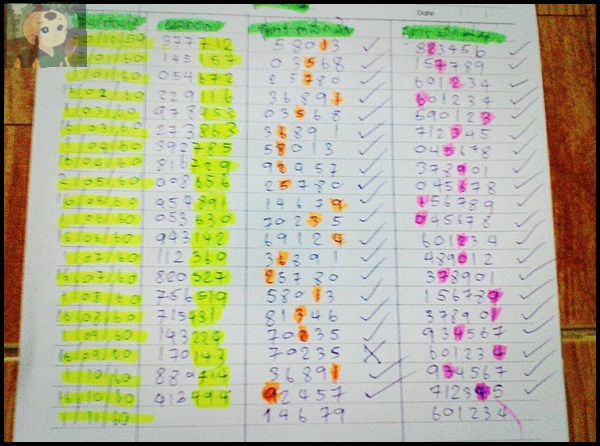 Date
377712 58013 ✓ 823456 ✓
145157 03568 ✓ 157789 ✓
1/02/60 054672 25780 ✓ 601234 ✓
16/02/60 229116 36891 ✓ 601234 ✓
1/03/60 978453 03568 ✓ 590123 ✓
16/03/60 273863 36891 ✓ 712345 ✓
1/04/60 392785 58013 ✓ 045678 ✓
16/04/60 816729 92457 ✓ 378901 ✓
2/05/60 008656 25780 ✓ 045678 ✓
16/05/60 954891 14679 ✓ 156789 ✓
1/06/60 053630 70235 ✓ 045678 ✓
16/06/60 943142 69124 ✓ 601234 ✓
1/07/60 112360 36891 ✓ 489012 ✓
16/07/60 820327 25780 ✓ 378901 ✓
1/08/60 756519 58013 ✓ 156789 ✓
16/08/60 715731 81346 ✓ 378901 ✓
1/09/60 143224 70235 ✓ 934567 ✓
16/09/60 170143 70235 X 601234 ✓
1/10/60 880714 36891 ✓ 934567 ✓
16/10/60 413494 92457 ✓ 712345 ✓
1/11/60 14679 601234